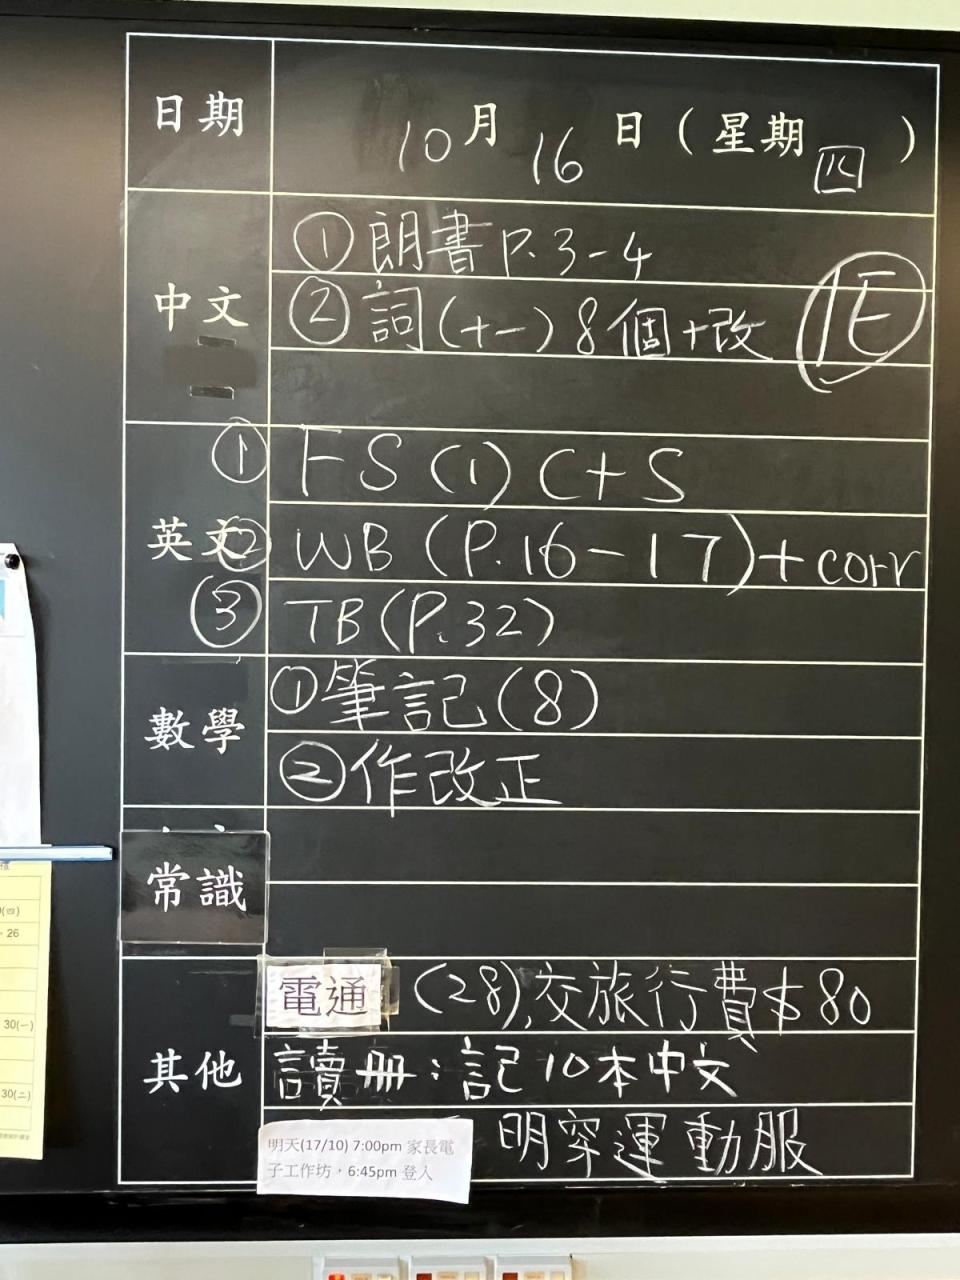 日期 10月16日(星期四)
中文
①朗書P.3-4
②詞(十一)8個+改 1E
英文
① FS(1)C+S
② WB(P.16-17)+corr
③ TB(P.32)
數學
①筆記(8)
②作改正
常識
其他
電通 (28),交旅行費$80
讀册:記10本中文
明天(17/10) 7:00pm 家長電
子工作坊,6:45pm 登入
明穿運動服
(四)
26
30(一)
30(二)